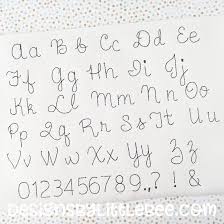 Aa Bb Cc Dd Ee
Ff Gg Hh Ii Jj
Kk Ll Mm Nn Oo
Pp Qq Rr Ss Tt Uu
Vv Ww Xx Yy Zz
0123456789.,?!&
DESIGNSBYLITTLEBEE.COM